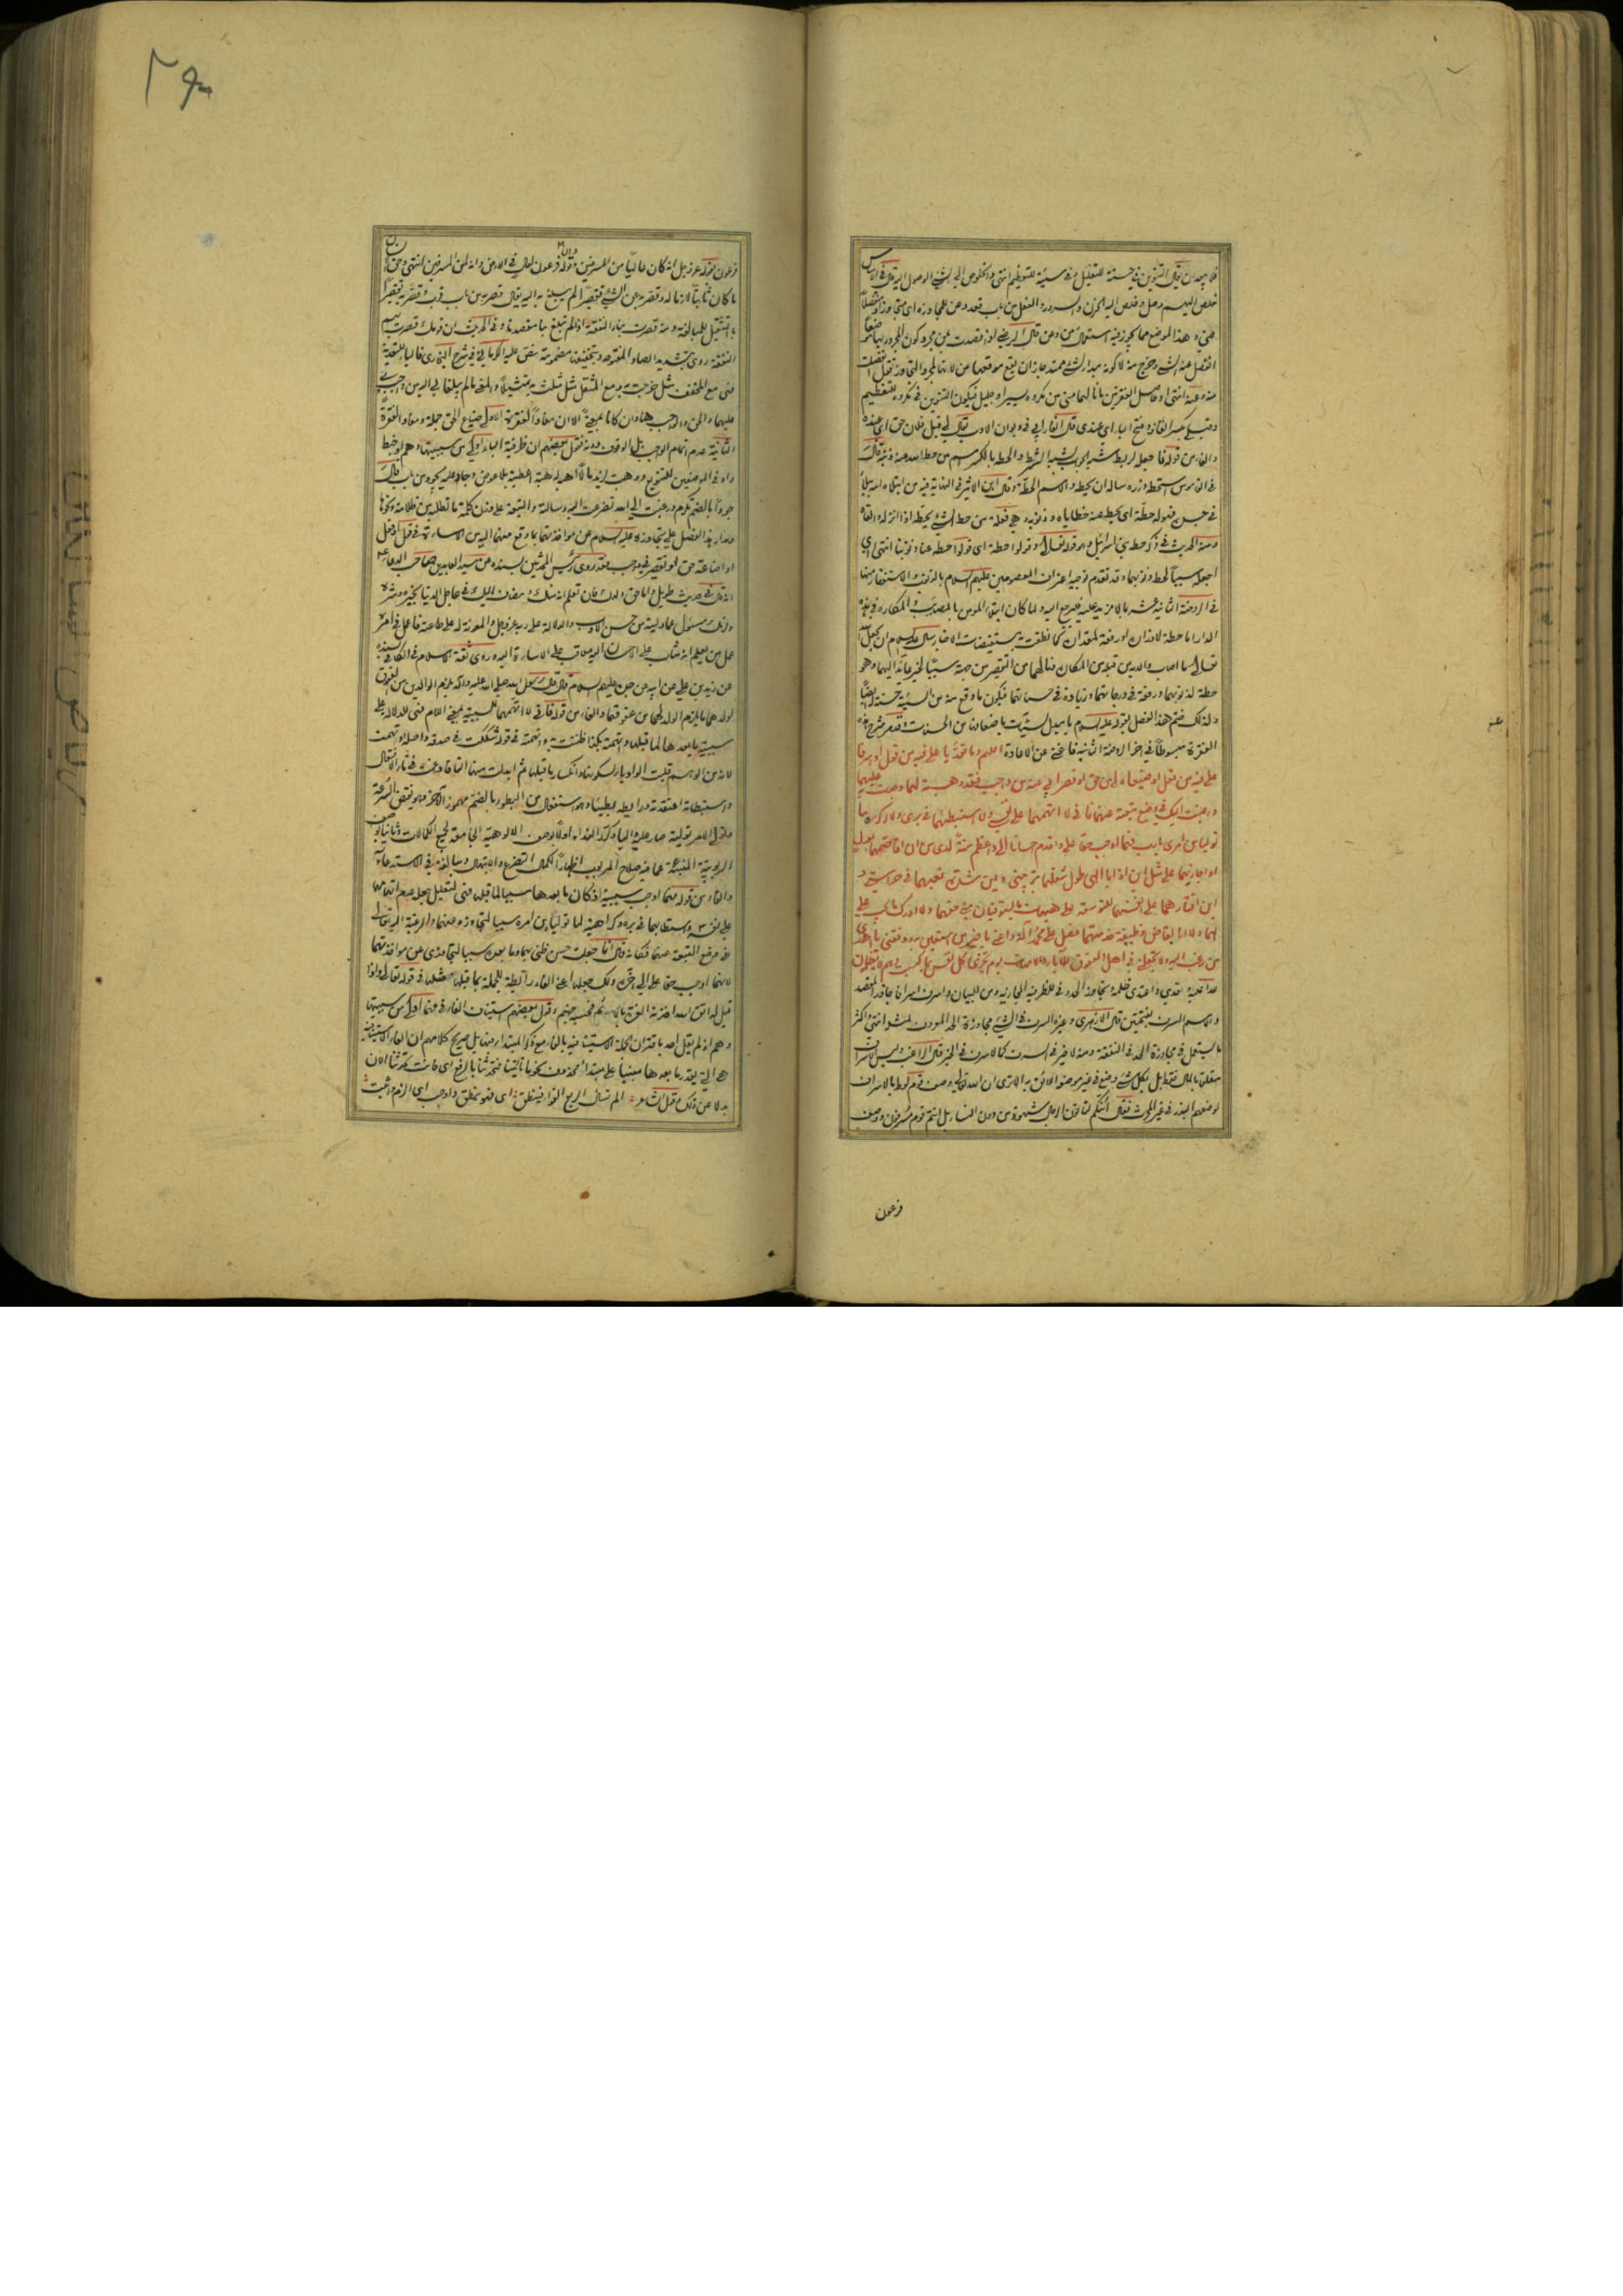 فلا يبعد ان يقال التنوين في حسنة للتقليل وفي سيئة للتعظيم انتهى والخلوص الى الشيء الوصول اليه قال في الاساس
خلص اليهم وصل وخلص اليه الحزن والسرور
عني وهذا الموضع مما يجوز فيه استعمال من وعن قال الرضي اذا قصدت بمن مجرد كون المجرور بها موضعا
انفصل عنه الشيء وخرج منه لا كونه مبدأ لشيء ممتد جاز ان يقع موقعها عن لانها لمجرد التجاوز تقول انفصلت
منه وعنه انتهى
وقبلي بكسر القاف وفتح الباء اي عندي قال الفارابي في ديوان الادب يقال لي قبل فلان حق اي عنده
والفاء من قوله فاجعله لربط شبه الجواب بشبه الشرط والحطة بالكسر اسم من حط الله عنه ذنبه قال
في القاموس استحطه وزره سأله ان يحطه والاسم الحطة وقال ابن الاثير في النهاية فيه من ابتلاه الله ببلاء
في جسده فهو له حطة اي يحط عنه خطاياه وذنوبه وهي فعلة من حط الشيء يحطه اذا انزله والقاه
ومنه الحديث في ذكر حطة بني اسرائيل وهو قوله تعالى وقولوا حطة اي قولوا حط عنا ذنوبنا انتهى اي
اجعله سببا لحط ذنوبهما وقد تقدم توجيه اعتراف المعصومين عليهم السلام بالذنوب والاستغفار منها
في الروضة الثانية عشر بما لا مزيد عليه فليرجع اليه ولما كان ابتلاء المؤمن بالمصائب والمكاره في هذه
الدار اما حطة لذنب او رفعة لمقدار كما نطقت به مستفيضات الاخبار سأل عليه السلام ان يجعل الله
تعالى ما اصاب والديه من قبله من المكاره ونالهما من التقصير من جهته سببا لخير عائد اليهما وهو
حطة لذنوبهما ورفعة في درجاتهما وزيادة في حسناتهما فيكون ما وقع منه من السيئة حسنة لهما
ولذلك ختم هذا الفصل بقوله عليه السلام يا مبدل السيئات باضعافها من الحسنات وقد مر شرح هذه
الفقرة مبسوطا في آخر الروضة الثانية فاغنى عن الاعادة اللهم وما تعديا علي فيه من قول او اسرفا
علي فيه من فعل او ضيعاه لي من حق او قصرا بي عنه من واجب فقد وهبته لهما وجدت به عليهما
ورغبت اليك في وضع تبعته عنهما فاني لا اتهمهما على نفسي ولا استبطئهما في بري ولا اكره ما
تولياه من امري يا رب فهما اوجب حقا علي واقدم احسانا الي واعظم منة لدي من ان اقاصهما بعدل
او اجازيهما على مثل اين اذا يا الهي طول شغلهما بتربيتي واين شدة تعبهما في حراستي و
اين اقتارهما على انفسهما للتوسعة علي هيهات ما يستوفيان مني حقهما ولا ادرك ما يجب علي
لهما ولا انا بقاض وظيفة خدمتهما فصل على محمد وآله واعني يا خير من استعين به ووفقني يا اهدى
من رغب اليه ولا تجعلني في اهل العقوق للآباء والامهات يوم تجزى كل نفس بما كسبت وهم لا يظلمون
عدا عليه وتعدى واعتدى ظلمه وتجاوز الحد وفي للظرفية المجازية ومن للبيان واسرف اسرافا جاوز القصد
والاسم السرف بفتحتين قال الازهري وغيره السرف في الشيء مجاوزة الحد المعروف لمثله انتهى واكثر
ما يستعمل في مجاوزة الحد في النفقة ومنه لا خير في السرف كما لا سرف في الخير قال الراغب وليس الاسراف
متعلقا بالمال فقط بل بكل شيء وضع في غير موضعه اللائق به الا ترى ان الله تعالى وصف قوم لوط بالاسراف
لوضعهم البذر في غير المحرث فقال أئنكم لتأتون الرجال شهوة من دون النساء بل انتم قوم مسرفون ووصف
فرعون
فرعون بقوله عز وجل انه كان عاليا من المسرفين وقوله وان فرعون لعال في الارض وانه لمن المسرفين انتهى
ما كان ثابتا لازما له وقصر به عن الشيء تقصيرا لم يبلغ به اليه يقال قصر به من باب قرب وقصر به تقصيرا
بالتثقيل للمبالغة ومنه قصرت بنا النفقة اذا لم تبلغ بنا مقصدنا وفي الحديث ان قومك قصرت بهم
النفقة روي بتشديد الصاد المفتوحة وتخفيفها مضمومة نص عليه الكرماني في شرح البخاري فالباء للتعدية
فهي مع المخفف مثل خرجت به ومع المثقل مثل
عليهما والحق والواجب هنا وان كانا بمعنى الا ان مفاد الفقرة الاولى ضياع الحق جملة ومفاد الفقرة
الثانية عدم اتمام الواجب
جودا بالضم تكرم ورغبت الى الله تضرعت اليه وسألته والتبعة على وزن كلمة ما تطلبه من ظلامة ونحوها
ومدار هذا الفصل على تجاوزه عليه السلام عن مؤاخذتهما بما وقع منهما اليه من الاساءة في قول او فعل
او اضاعة حق او تقصير في واجب فقد روى رئيس المحدثين بسنده عن سيد العابدين صاحب الدعاء
انه قال في حديث طويل واما حق ولدك فان تعلم انه منك ومضاف اليك في عاجل الدنيا بخيره وشره
وانك مسئول عما وليته من حسن الادب والدلالة على ربه عز وجل والمعونة له على طاعته فاعمل في امره
عمل من يعلم انه مثاب على الاحسان اليه معاقب على الاساءة اليه وروى ثقة الاسلام في الكافي بسنده
عن زيد بن علي عن ابيه عن جده عليهم السلام قال قال رسول الله صلى الله عليه وآله يلزم الوالدين من العقوق
لولدهما ما يلزم الولد لهما من عقوقهما والفاء من قوله فاني لا اتهمهما للسببية بمعنى اللام فهي للدلالة على
سببية ما بعدها لما قبلها واتهمته بكذا ظننت به واتهمته في قوله شككت في صدقه واصله اوتهمت
لانه من الوهم قلبت الواو ياء لسكونها وانكسار ما قبلها ثم ابدلت منها التاء فادغمت في تاء الافتعال
واستبطأته اعتقدته
وتولى الامر تولية صار عليه واليا وكرر النداء اولا بوصف الالوهية الجامعة لجميع الكمالات وثانيا بوصف
الربوبية المنبئة عما فيه صلاح المربوب اظهارا لكمال التضرع والابتهال ومبالغة في الاستدعاء
والفاء من قوله فهما اوجب سببية اذ كان ما بعدها سببا لما قبلها فهي لتعليل
على نفسه واستبطائهما في بره وكراهية لما تولياه من امره سببا للتجاوز عنهما والرغبة اليه تعالى
في وضع التبعة عنهما فكأنه قال انما جعلت حسن ظني بهما وما بعده سببا لتجاوزي عن مؤاخذتهما
لانهما اوجب حقا علي الى آخره ولك جعلها اعني الفاء رابطة للجملة بما قبلها مثلها في قوله تعالى واذا
قيل له اتق الله اخذته العزة بالاثم فحسبه جهنم وقول بعضهم استيناف الفاء في فهما اولى من سببيتها
وهم اذ لم يقل احد باقتران الجملة الاستينافية بالفاء مع ذكر المبتدأ
هي التي يقدر ما بعدها مبنيا على مبتدأ محذوف نحو ما تأتينا فتحدثنا بالرفع اي فانت تحدثنا الآن
بدلا عن ذلك وقول الشاعر الم تسأل الربع القواء فينطق اي فهو ينطق واوجب اي الزم واثبت